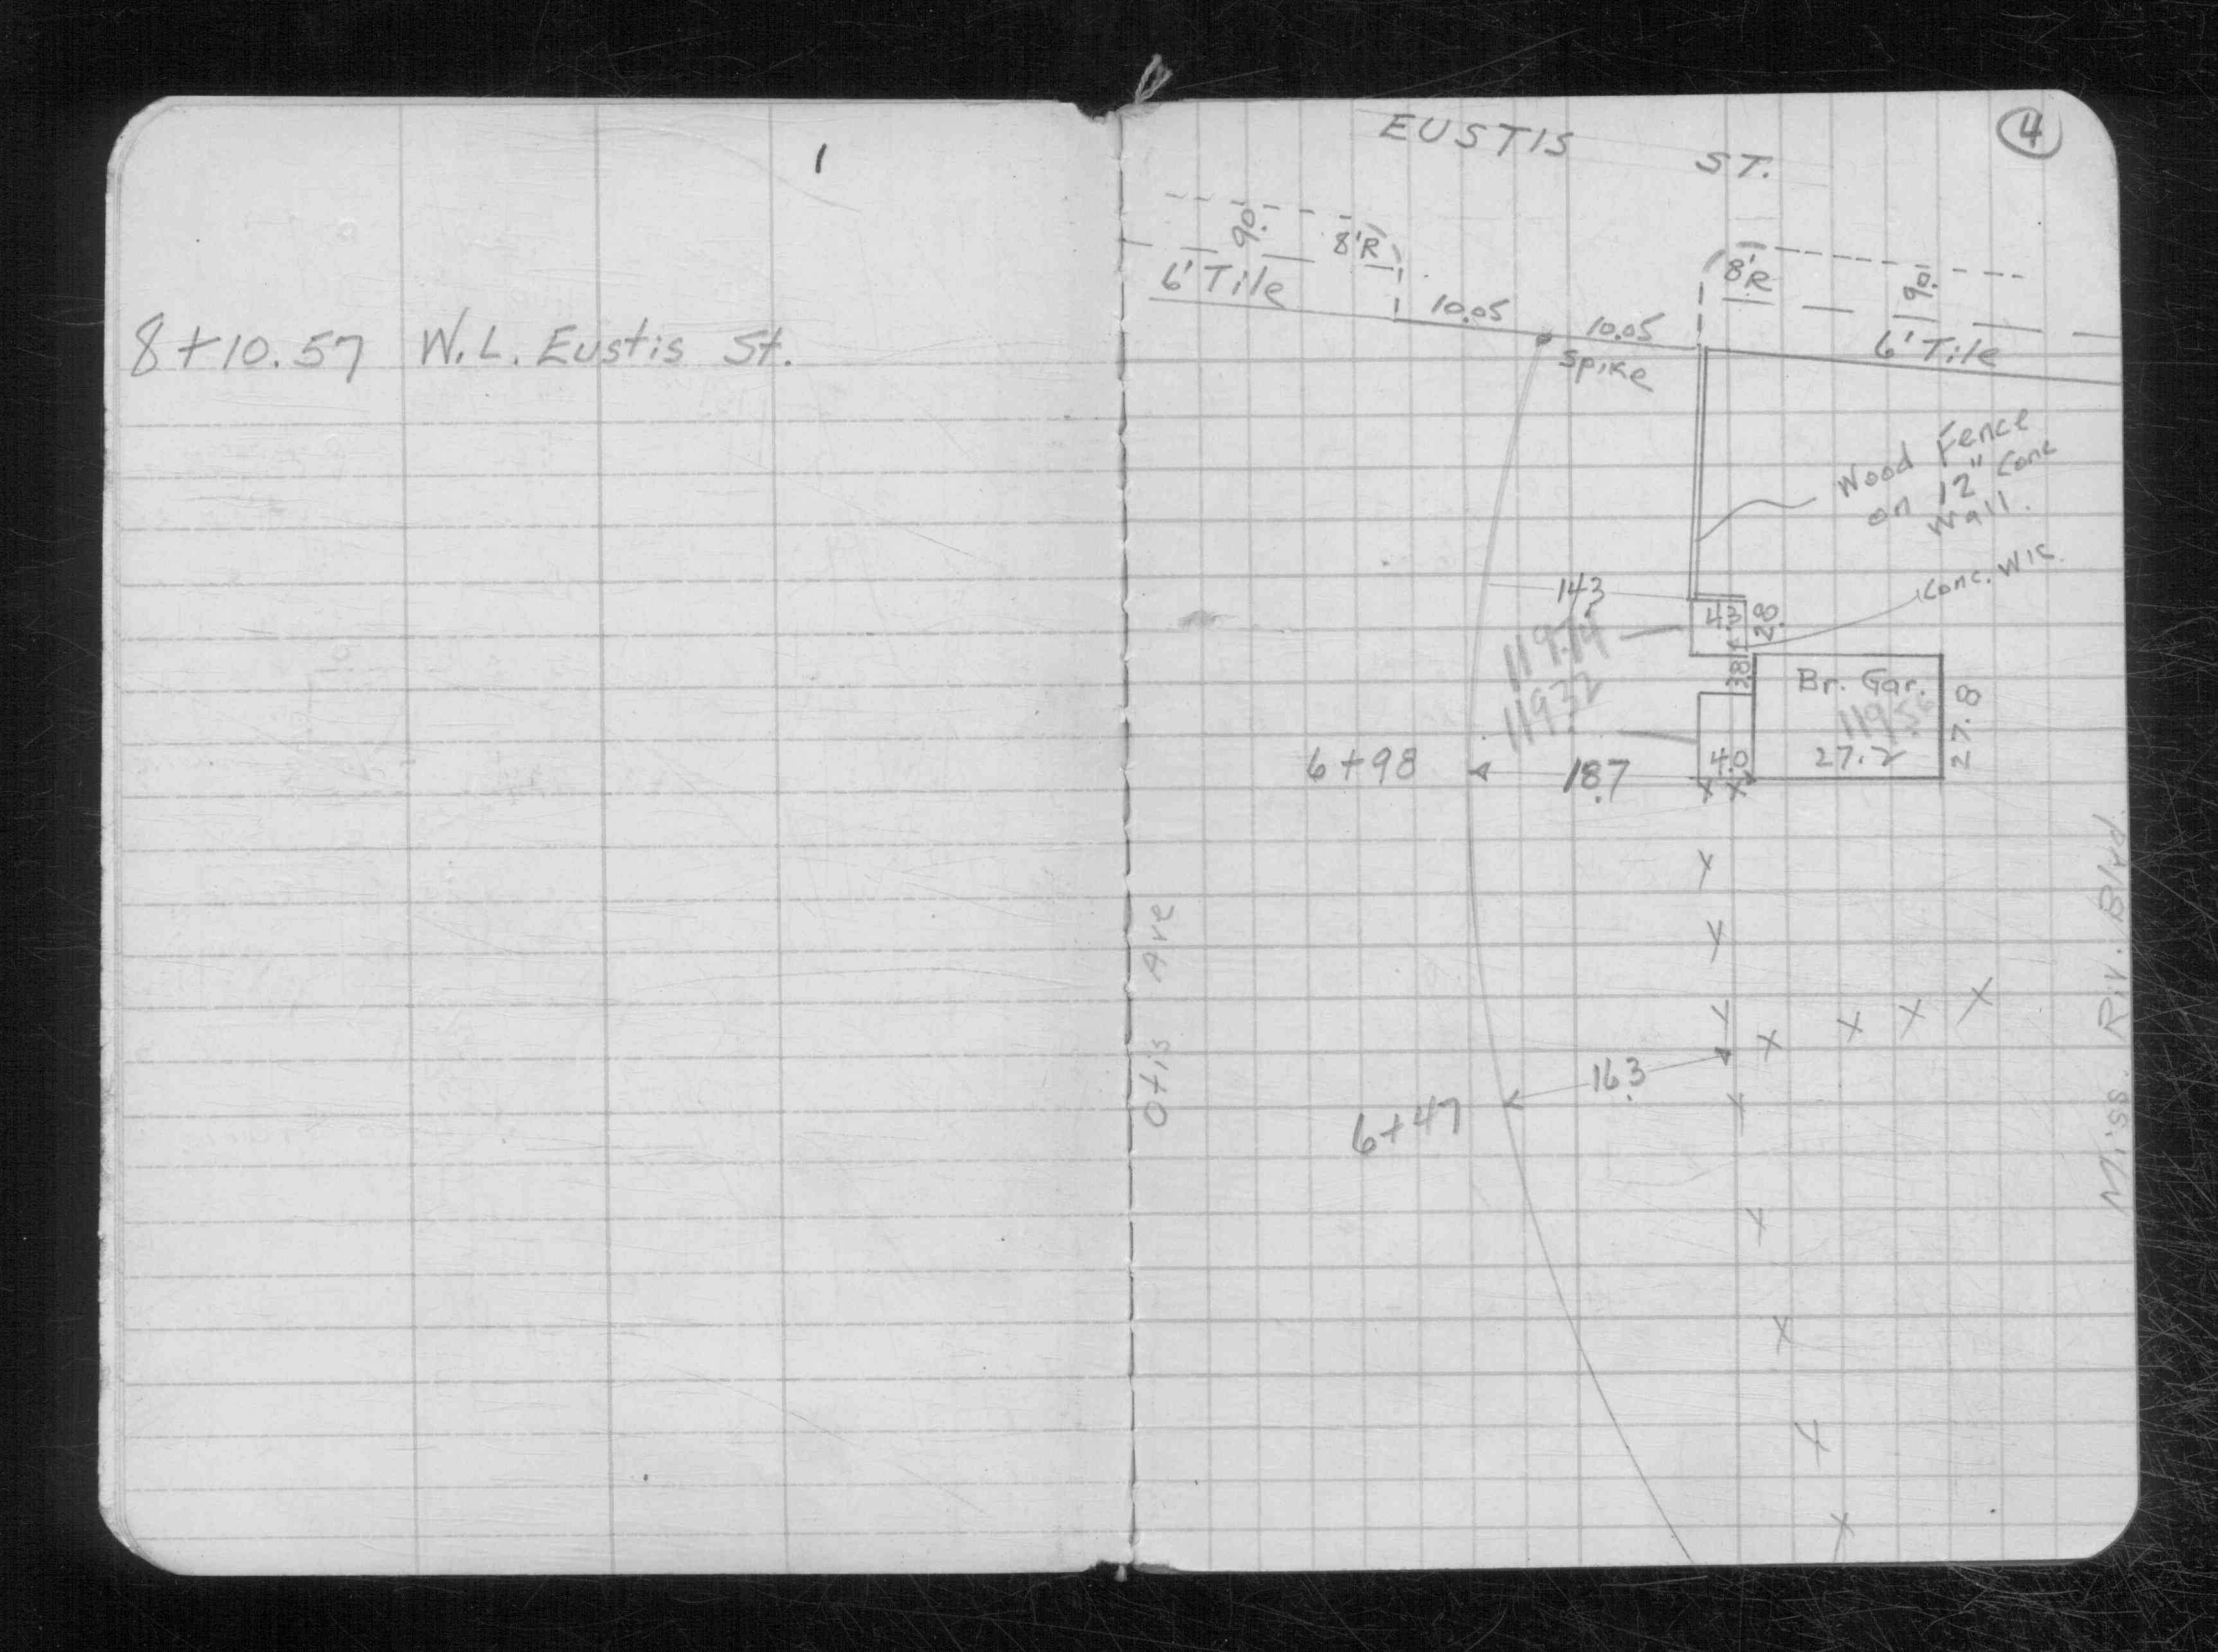 1
8+10.57 W.L. Eustis St.
4
EUSTIS ST.
90.
8'R
6' Tile
10.05
10.05
Spike
8'R
90.
6' Tile
Wood Fence
on 12" Conc
Wall.
Conc. Wlk.
14.3
4.3
2.8
119.14
3.8
119.32
Br. Gar.
27.2
27.8
6+98
18.7
4.0
Otis Ave
Miss. Riv. Blvd.
16.3
6+47